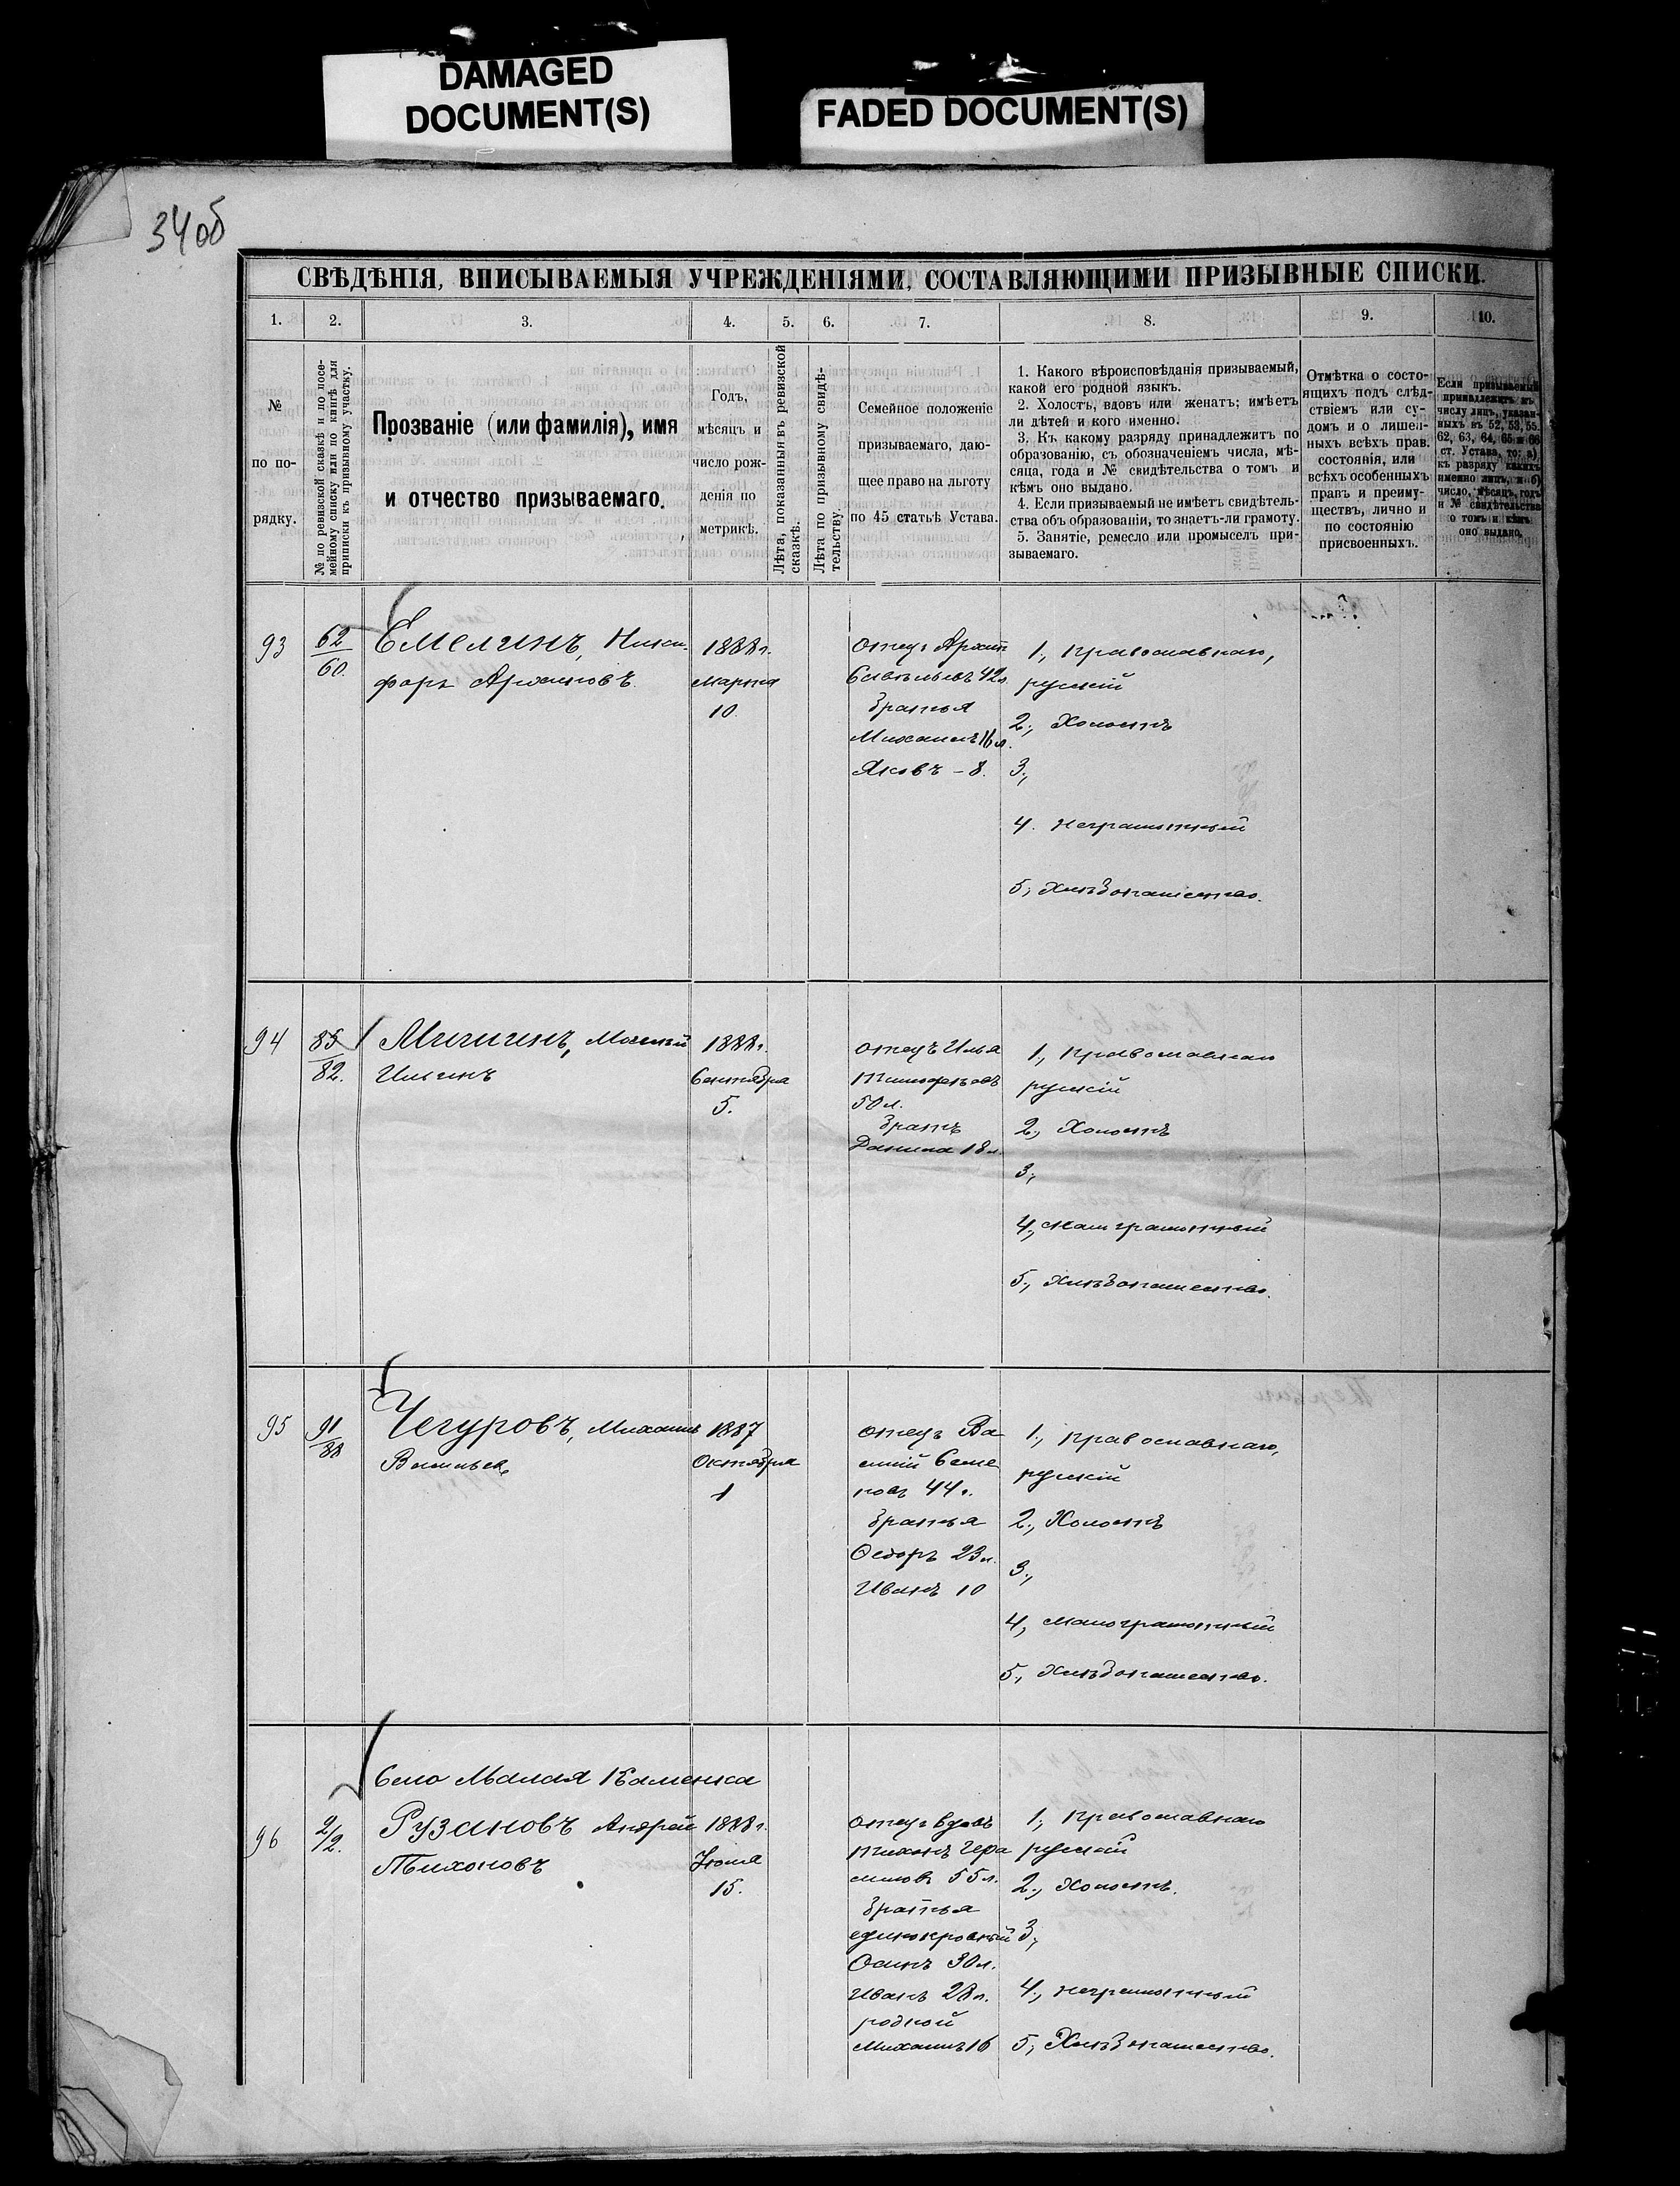 DAMAGED
DOCUMENT(S)
FADED DOCUMENT(S)
34об
СВѢДѢНІЯ, ВПИСЫВАЕМЫЯ УЧРЕЖДЕНІЯМИ, СОСТАВЛЯЮЩИМИ ПРИЗЫВНЫЕ СПИСКИ.
1.
2.
3.
4.
5.
6.
7.
8.
9.
10.
№
по по-
рядку.
№ по ревизской сказкѣ и по посе-
мейному списку или по книгѣ для
приписки къ призывному участку.
Прозваніе (или фамилія), имя
и отчество призываемаго.
Годъ,
мѣсяцъ и
число рож-
денія по
метрикѣ.
Лѣта, показанныя въ ревизской
сказкѣ.
Лѣта по призывному свидѣ-
тельству.
Семейное положеніе
призываемаго, даю-
щее право на льготу
по 45 статьѣ Устава.
1. Какого вѣроисповѣданія призываемый,
какой его родной языкъ.
2. Холостъ, вдовъ или женатъ; имѣетъ
ли дѣтей и кого именно.
3. Къ какому разряду принадлежитъ по
образованію, съ обозначеніемъ числа, мѣ-
сяца, года и № свидѣтельства о томъ и
кѣмъ оно выдано.
4. Если призываемый не имѣетъ свидѣтель-
ства объ образованіи, то знаетъ-ли грамоту.
5. Занятіе, ремесло или промыселъ при-
зываемаго.
Отмѣтка о состо-
ящихъ подъ слѣд-
ствіемъ или су-
домъ и о лишен-
ныхъ всѣхъ прав.
состоянія, или
всѣхъ особенныхъ
правъ и преиму-
ществъ, лично и
по состоянію
присвоенныхъ.
Если призываемый
принадлежитъ къ
числу лицъ, указан-
ныхъ въ 52, 53, 55,
62, 63, 64, 65 и 66
ст. Устава, то: а)
къ разряду какихъ
именно лицъ, и б)
число, мѣсяцъ, годъ
и № свидѣтельства
о томъ и кѣмъ
оно выдано.
93
62
60.
Емелинъ, Ники-
форъ Архиповъ
1888 г.
марта
10.
отецъ Архипъ
Савельевъ 42 л.
братья
Михаилъ 16 л.
Яковъ - 8.
1., православнаго,
русскій
2., Холостъ
3.,
4. неграмотный
5., Хлѣбопашество.
94
85
82.
Мичинъ, Моисей
Ильинъ
1888 г.
Сентября
5.
отецъ Илья
Тимофеевъ
50 л.
братъ
Данила 18 л.
1., православнаго
русскій
2., Холостъ
3.,
4., малограмотный
5., Хлѣбопашество.
95
91
88
Чегуровъ, Михаилъ
Васильевъ
1887
Октября
1
отецъ Ва-
силій Семе
новъ 44 г.
братья
Ѳедоръ 23 л.
Иванъ 10
1., православнаго,
русскій
2., Холостъ
3.,
4., малограмотный
5., Хлѣбопашество.
Село Малая Каменка
96
2/2.
Рузановъ Андрей
Тихоновъ
1888 г.
Іюля
15.
отецъ вдовъ
Тихонъ Гера
симовъ 55 л.
братья
единокровный
Осипъ 30 л.
Иванъ 28 л.
родной
Михаилъ 16
1., православнаго
русскій
2., Холостъ.
3.,
4., неграмотный
5., Хлѣбопашество.